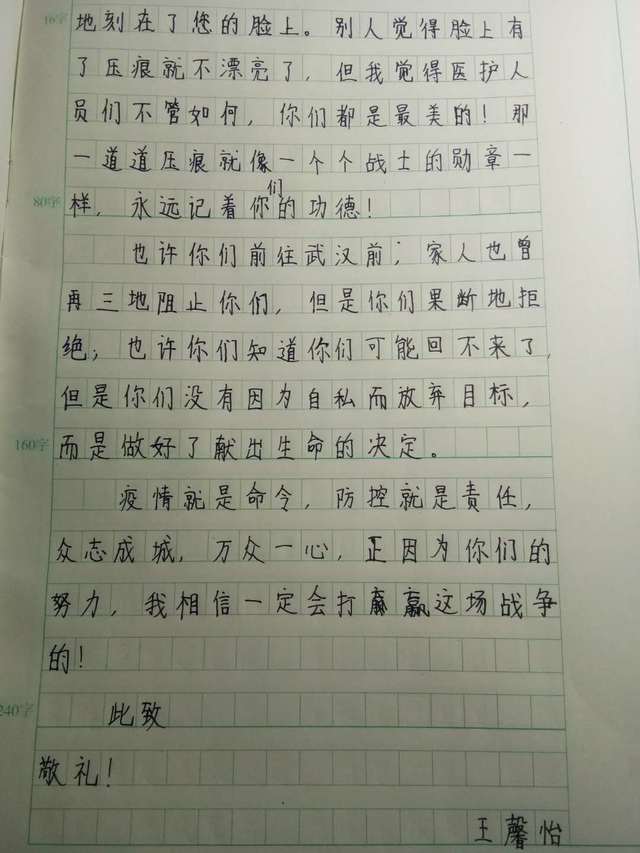 16字 地刻在了您的脸上。别人觉得脸上有
了压痕就不漂亮了，但我觉得医护人
员们不管如何，你们都是最美的！那
一道道压痕就像一个个战士的勋章一
80字 样，永远记着你们的功德！
也许你们前往武汉前；家人也曾
再三地阻止你们，但是你们果断地拒
绝；也许你们知道你们可能回不来了，
但是你们没有因为自私而放弃目标，
160字 而是做好了献出生命的决定。
疫情就是命令，防控就是责任，
众志成城，万众一心，正因为你们的
努力，我相信一定会打赢这场战争
的！
240字 此致
敬礼！
王馨怡